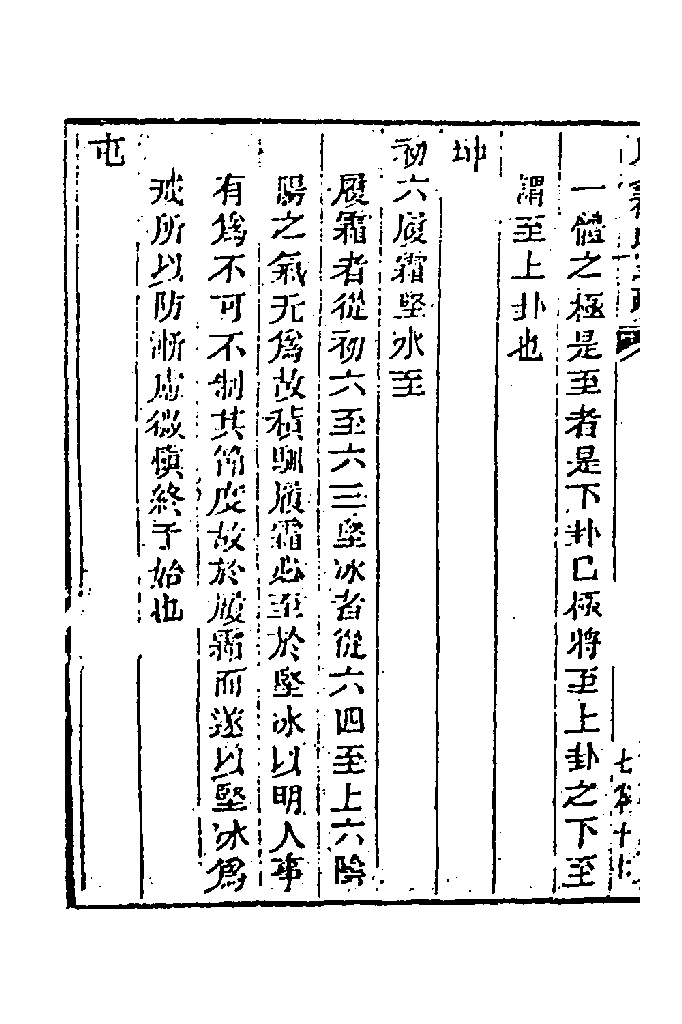 一體之極是至者是下卦已極將至上卦之下至
謂至上卦也
坤
初六履霜堅冰至
履霜者從初六至六三堅冰者從六四至上六陰
陽之氣无爲故積馴履霜必至於堅冰以明人事
有爲不可不制其節度故於履霜而逆以堅冰爲
戒所以防漸慮微慎終于始也
屯